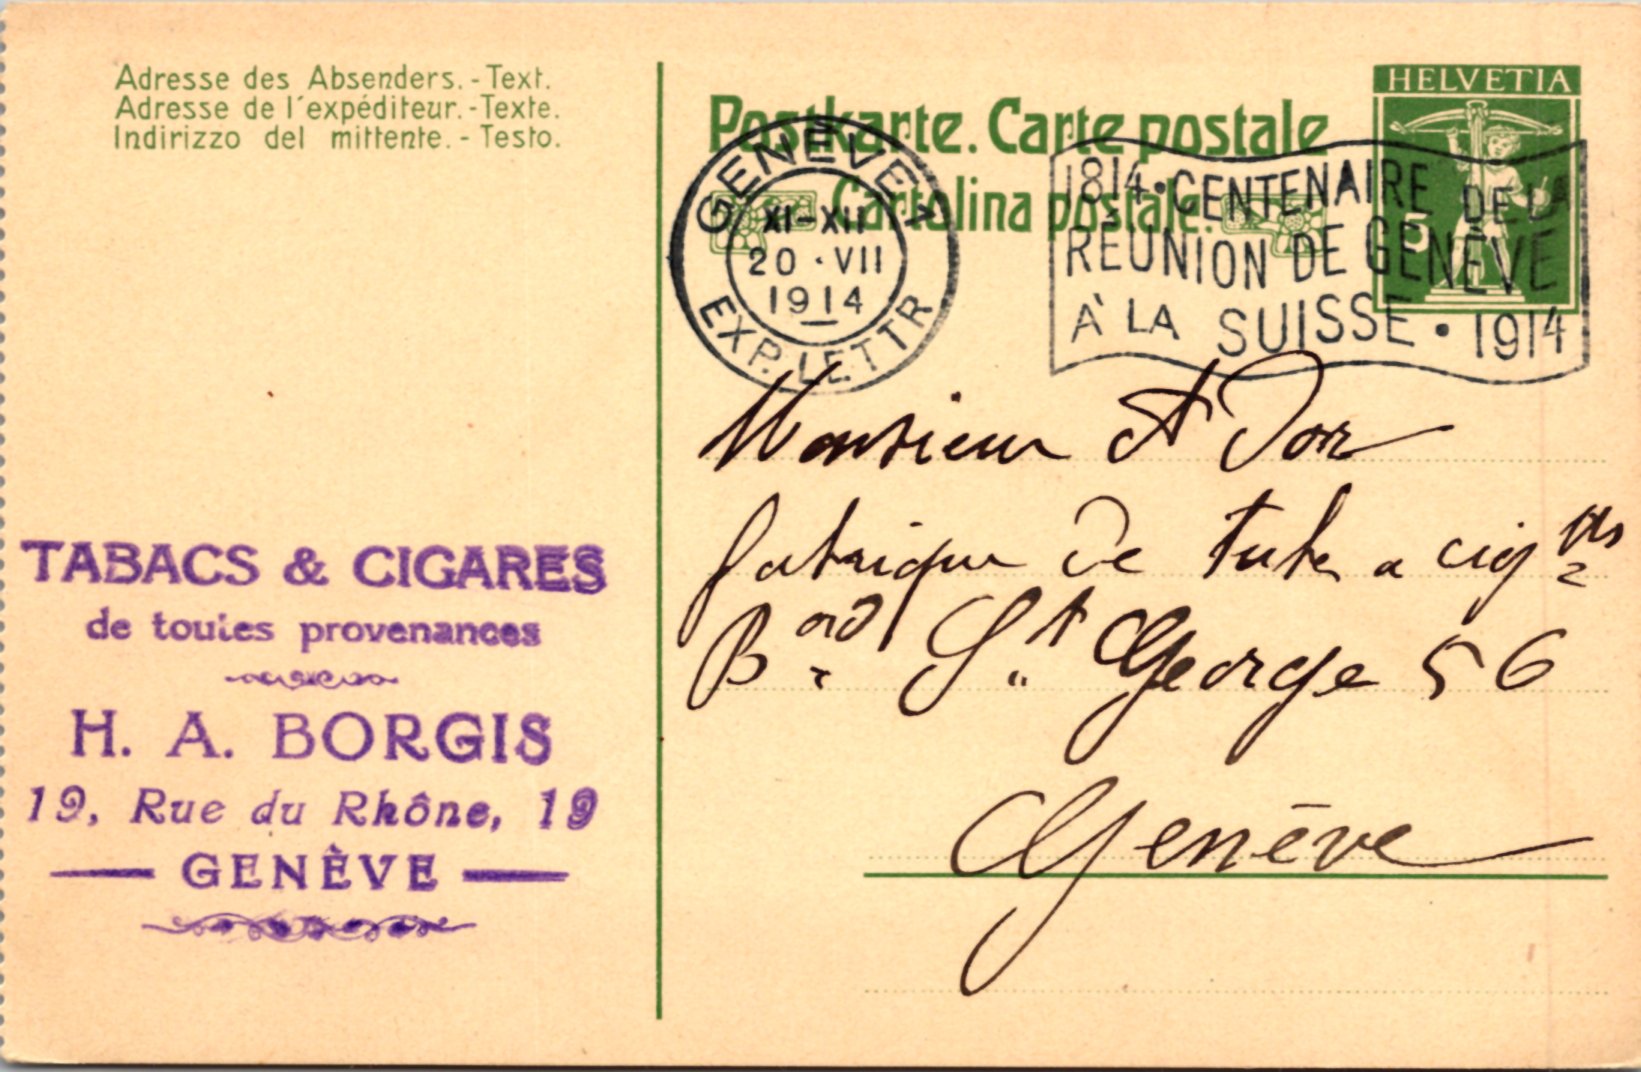 Adresse des Absenders. - Text.
Adresse de l'expéditeur. - Texte.
Indirizzo del mittente. - Testo.
Postkarte. Carte postale
Cartolina postale.
HELVETIA
5
GENÈVE 1
XI-XII
20 · VII
1914
EXP. LETTR
1814 · CENTENAIRE DE LA
RÉUNION DE GENÈVE
À LA SUISSE · 1914
TABACS & CIGARES
de toutes provenances
H. A. BORGIS
19, Rue du Rhône, 19
GENÈVE
Monsieur A Dor
fabrique de tube a cig
Bord St George 56
Genève